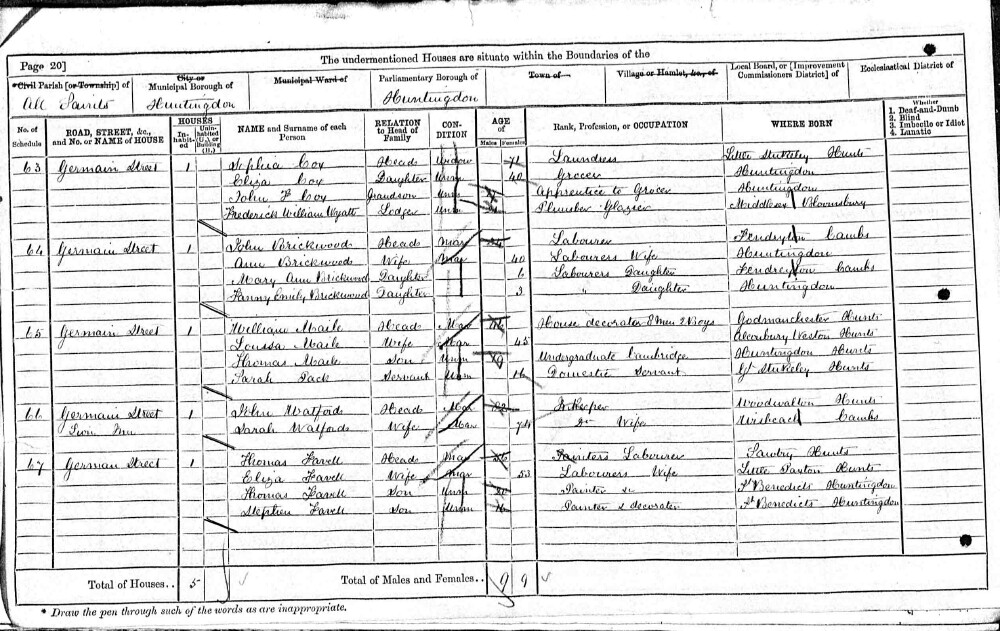 Page 20]
The undermentioned Houses are situate within the Boundaries of the
*Civil Parish [or Township] of
City or Municipal Borough of
Municipal Ward of
Parliamentary Borough of
Town of
Village or Hamlet, &c., of
Local Board, or [Improvement Commissioners District] of
Ecclesiastical District of
All Saints
Huntingdon
Huntingdon
No. of Schedule
ROAD, STREET, &c., and No. or NAME of HOUSE
HOUSES
Inhabited
Uninhabited (U.), or Building (B.)
NAME and Surname of each Person
RELATION to Head of Family
CONDITION
AGE of
Males
Females
Rank, Profession, or OCCUPATION
WHERE BORN
Whether
1. Deaf-and-Dumb
2. Blind
3. Imbecile or Idiot
4. Lunatic
63 Germain Street 1 Sophia Cox Head Widow 71 Laundress Little Stukeley Hunts
Eliza Cox Daughter Unm 40 Grocer Huntingdon
John F Cox Grandson Unm Apprentice to Grocer Huntingdon
Frederick William Wyatt Lodger Unm Plumber Glazier Middlesex Bloomsbury
64 Germain Street 1 John Brickwood Head Mar Labourer Cambs
Ann Brickwood Wife Mar 40 Labourers Wife Huntingdon
Mary Ann Brickwood Daughter 6 Labourers Daughter Cambs
Fanny Emily Brickwood Daughter 3 " Daughter Huntingdon
65 Germain Street 1 William Maile Head Mar House decorater 8 Men 2 Boys Godmanchester Hunts
Louisa Maile Wife Mar 45 Alconbury Weston Hunts
Thomas Maile Son Unm 19 Undergraduate Cambridge Huntingdon Hunts
Sarah Pack Servant Unm 16 Domestic Servant Gt Stukeley Hunts
66 Germain Street 1 John Watford Head Mar Woodwalton Hunts
Sarah Watford Wife Mar 74 Do Wife Wisbeach Cambs
67 German Street 1 Thomas Favell Head Mar Painters Labourer Hunts
Eliza Favell Wife Mar 53 Labourers Wife Little Paxton Hunts
Thomas Favell Son Unm Painter &c St Benedicts Huntingdon
Stephen Favell Son Unm Painter & decorater St Benedicts Huntingdon
Total of Houses.. 5
Total of Males and Females.. 9 9
* Draw the pen through such of the words as are inappropriate.